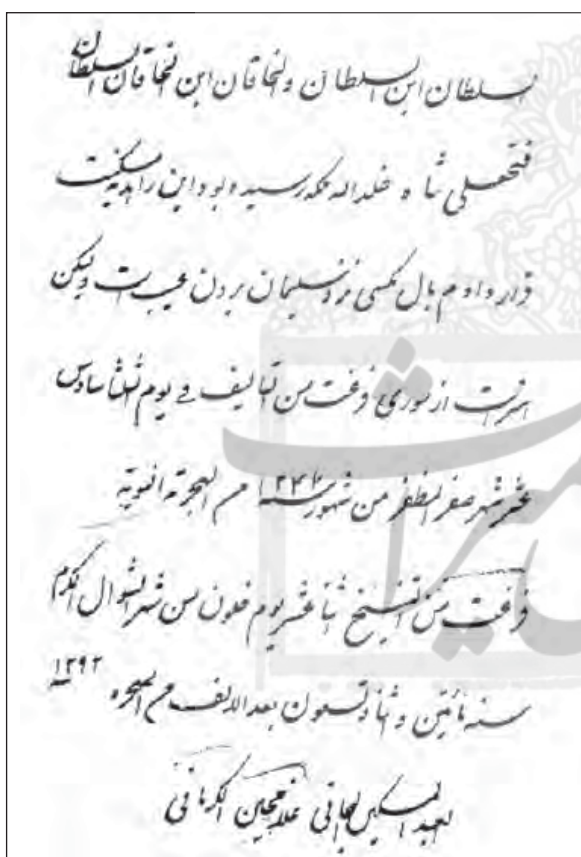 السلطان ابن السلطان والخاقان ابن الخاقان السلطان
فتحعلی شاه خلد الله ملکه رسیده بود این را هدیه
قرار دادم پای مکسی نزد سلیمان بردن عیب است ولیکن
است از موری فرغت من التألیف فی یوم الثلثا سادس
عشر شهر صفر المظفر من شهور سنه ۱۲۴۷ من الهجرة النبویة
فرغت من التنسیخ اثنا عشر یوم خلون من شهر الشوال المکرم
سنه مأتین و تسعون بعد الالف من الهجره ۱۲۹۲
العبد المسکین الجانی غلامحسین الکرمانی